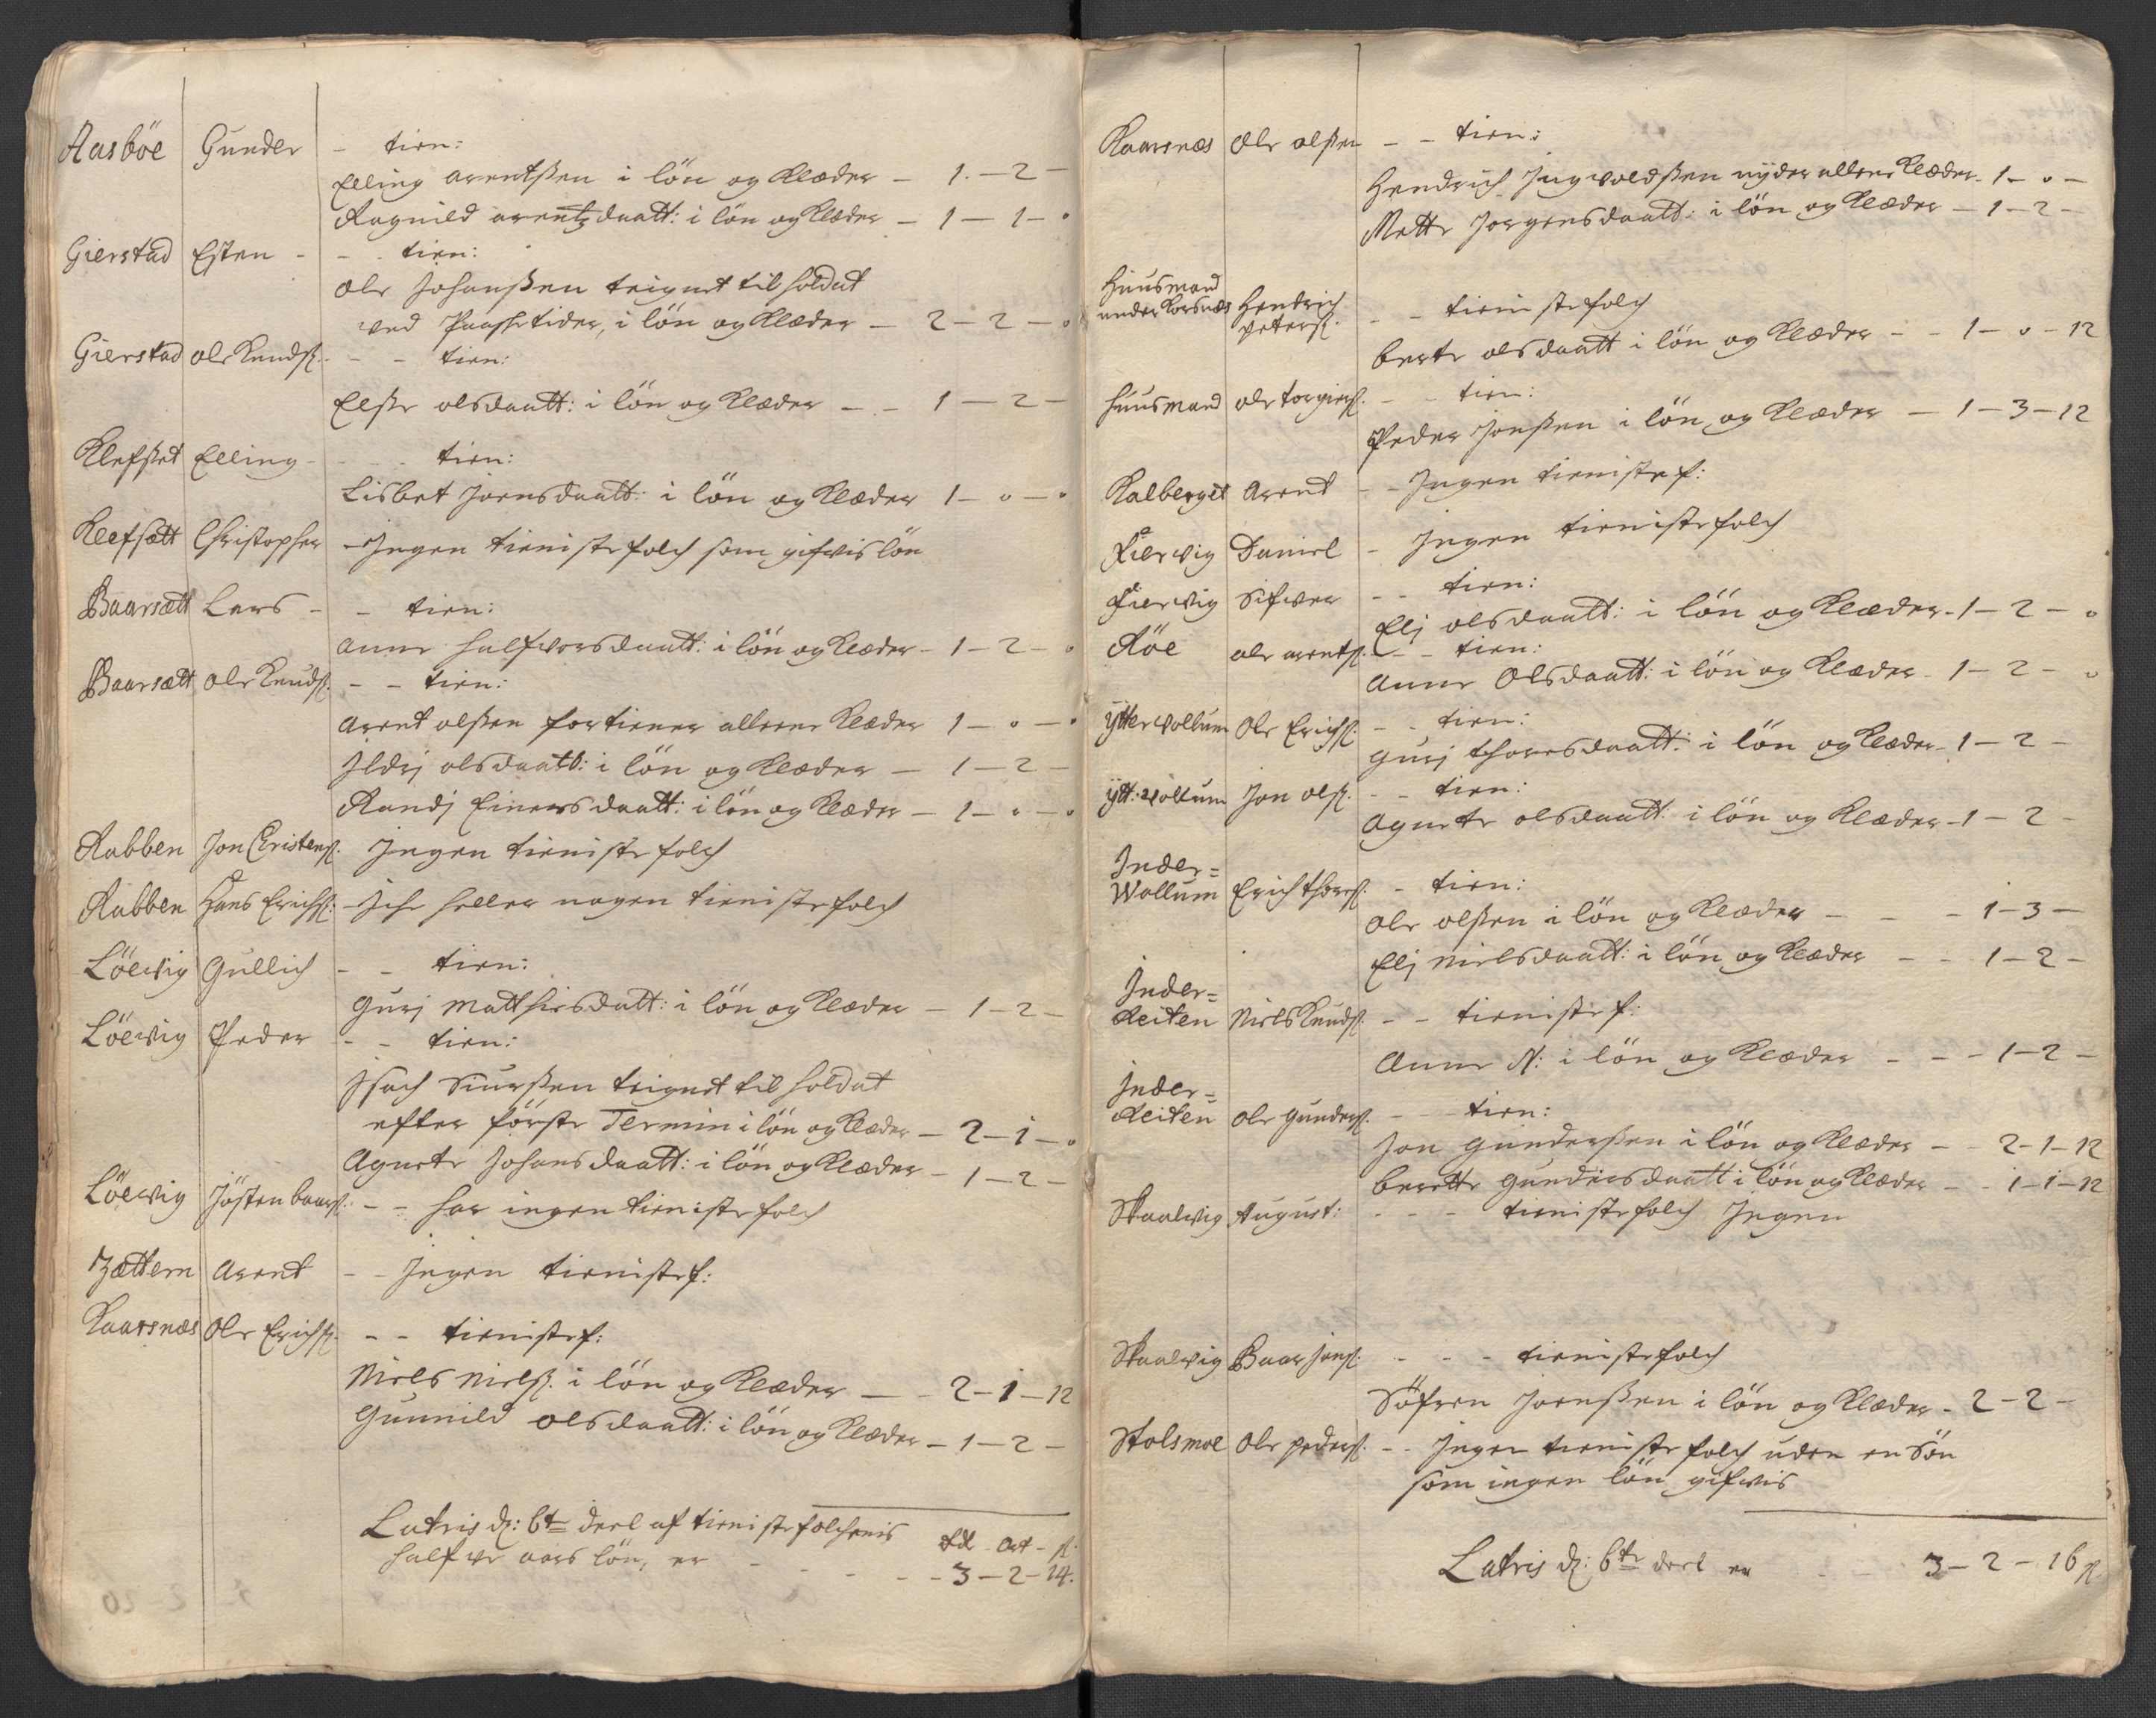 Aasböe Gunder - tien:
Elling arentßen i lön og Klæder - 1. - 2 -
Ragnild arentzdaatt: i lön og Klæder - 1 - 1 - 0
Gierstad Esten - - - tien:
Ole Johanßen teignet til Soldat
ved Paaschetider, i lön og Klæder - 2 - 2 - 0
Gierstad Ole Knudß. - - tien:
Elße olsdaatt: i lön og Klæder - - 1 - 2 -
Klefset Elling - - - tien:
Lisbet Joensdaatt: i lön og Klæder 1 - 0 - 0
Klefsett Christopher - Ingen tieniste folch som gifvis lön
Baarsætt Lars - - tien:
Anne Halfvorsdaatt: i lön og Klæder - 1 - 2 - 0
Baarsætt Ole Knudß. - - tien:
Arent olßen fortiener alleene Klæder 1 - 0 - 0
Ildrj olsdaatt: i lön og Klæder - 1 - 2 -
Randj Einersdaatt: i lön og Klæder - 1 - 0 - 0
Rabben Jon Christenß. Ingen tieniste folch
Rabben Hans Erichß: - Iche heller nogen tieniste folch
Löevig Gullich - - tien:
Gurj Matthiesdatt: i lön og Klæder - 1 - 2 -
Löevig Peder - - tien:
Isach Siurßen teignet til Soldat
efter förste Termin i lön og Klæder - 2 - 1 - 0
Agnete Johansdaatt: i lön og Klæder - 1 - 2 -
Löevig Jösten baarß: - - har ingen tieniste folch
Zættem Arent - - Ingen tienistef:
Kaarsnæs Ole Erichß. - - tienistef:
Niels Nielß. i lön og Klæder - - 2 - 1 - 12
Gunnild olsdaatt: i lön og Klæder - 1 - 2 -
Latris dz: 6te deel af tieniste folchenis
halfve aars lön, er
rdl - ort - ß.
- - - 3 - 2 - 14.
Kaarsnæs Ole olßen - - tien:
Hendrich Ingvoldßen nyder alleene Klæder - 1 - 0 -
Mette Jorgensdaatt: i lön og Klæder - 1 - 2 -
Huusmand
under Korsnæs Hendrich
Peterß. - - tieniste folch
berte olsdaatt i lön og Klæder - - 1 - 0 - 12
Huusmand Ole torgierß. - - tien:
Peder Jonßen i lön og Klæder - 1 - 3 - 12
Kalberget Arent - - Ingen tienistef:
Fiervig Daniel - Ingen tieniste folch
Fiervig Sifver - - tien:
Elj olsdaatt: i lön og Klæder - 1 - 2 - 0
Röe ole arentß. - - tien:
Anne Olsdaatt: i lön og Klæder - 1 - 2 - 0
Ytter vollum Ole Erichß. - - tien:
Gurj thoresdaatt: i lön og Klæder - 1 - 2 -
Ytt: vollum Jon olß. - - tien:
Agnete olsdaatt: i lön og Klæder - 1 - 2 -
Inder=
Wollum Erich thoreß. - tien:
Ole olßen i lön og Klæder - - - 1 - 3 -
Elj Nielsdaatt: i lön og Klæder - - 1 - 2 -
Inder=
Reiten Niels Knudß. - - tienistef:
Anne N: i lön og Klæder - - - 1 - 2 -
Inder=
Reiten Ole Gunderß. - - tien:
Jon Gunderßen i lön og Klæder - - 2 - 1 - 12
Berette Gundersdaatt i lön og Klæder - - 1 - 1 - 12
Skaalvig August: - - - tieniste folch Ingen
Skaalvig Baar Jonß: - - - tieniste folch
Söfren Joenßen i lön og Klæder - 2 - 2 -
Stolsmoe Ole pederß. - - Ingen tieniste folch uden en Sön
som ingen lön gifvis
Latris dz: 6te deel er - - 3 - 2 - 16 ß.